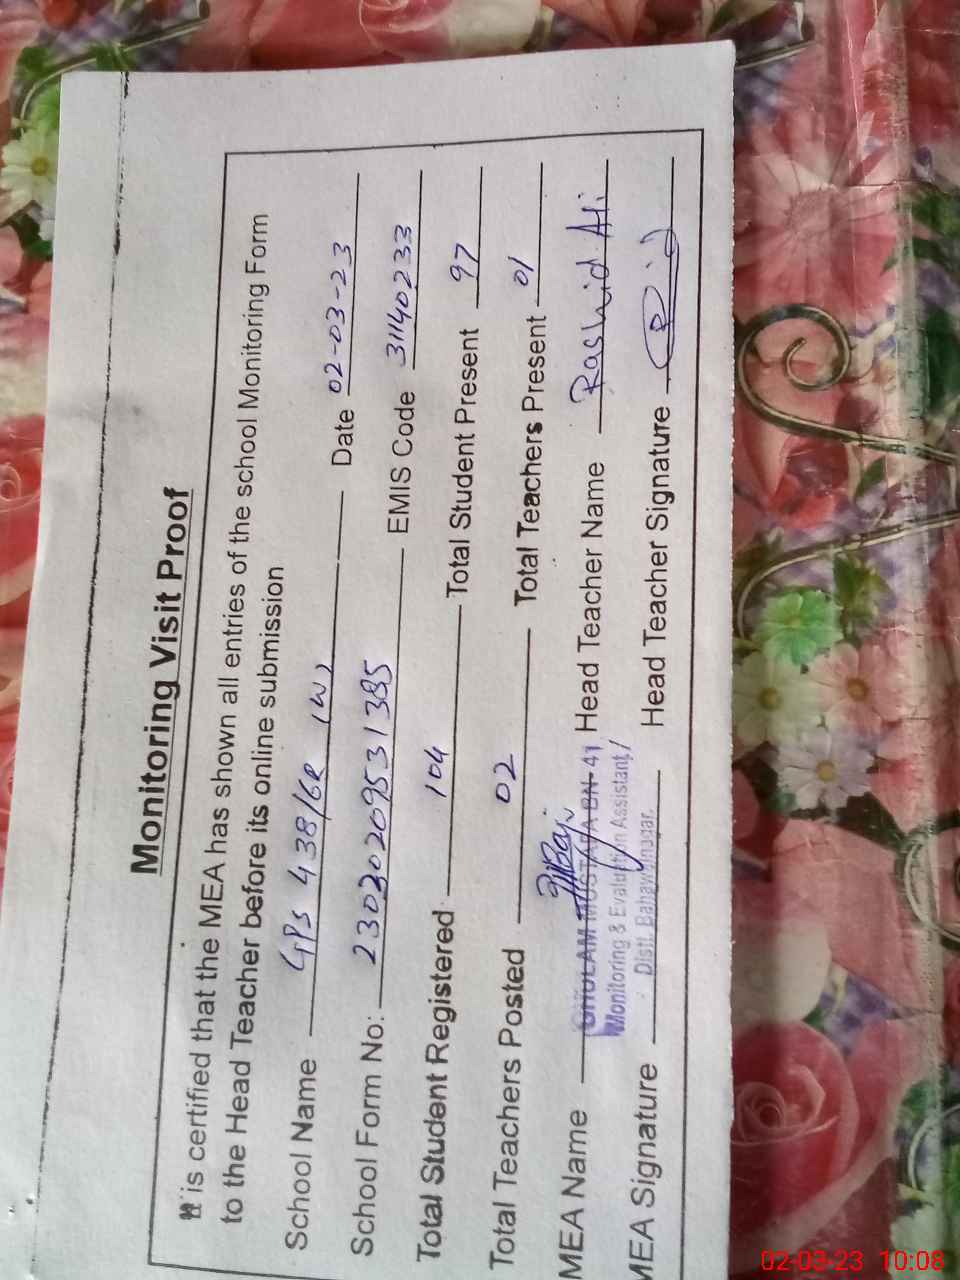 Monitoring Visit Proof
It is certified that the MEA has shown all entries of the school Monitoring Form
to the Head Teacher before its online submission
School Name GPS 438/6R (W) Date 02-03-23
School Form No: 23020209531385 EMIS Code 31140233
Total Student Registered 104 Total Student Present 97
Total Teachers Posted 02 Total Teachers Present 01
MEA Name GHULAM MUSTAFA BN-41 Head Teacher Name Rashid Ali
Monitoring & Evaluation Assistant
Distt. Bahawalnagar.
MEA Signature Head Teacher Signature
02-03-23 10:08